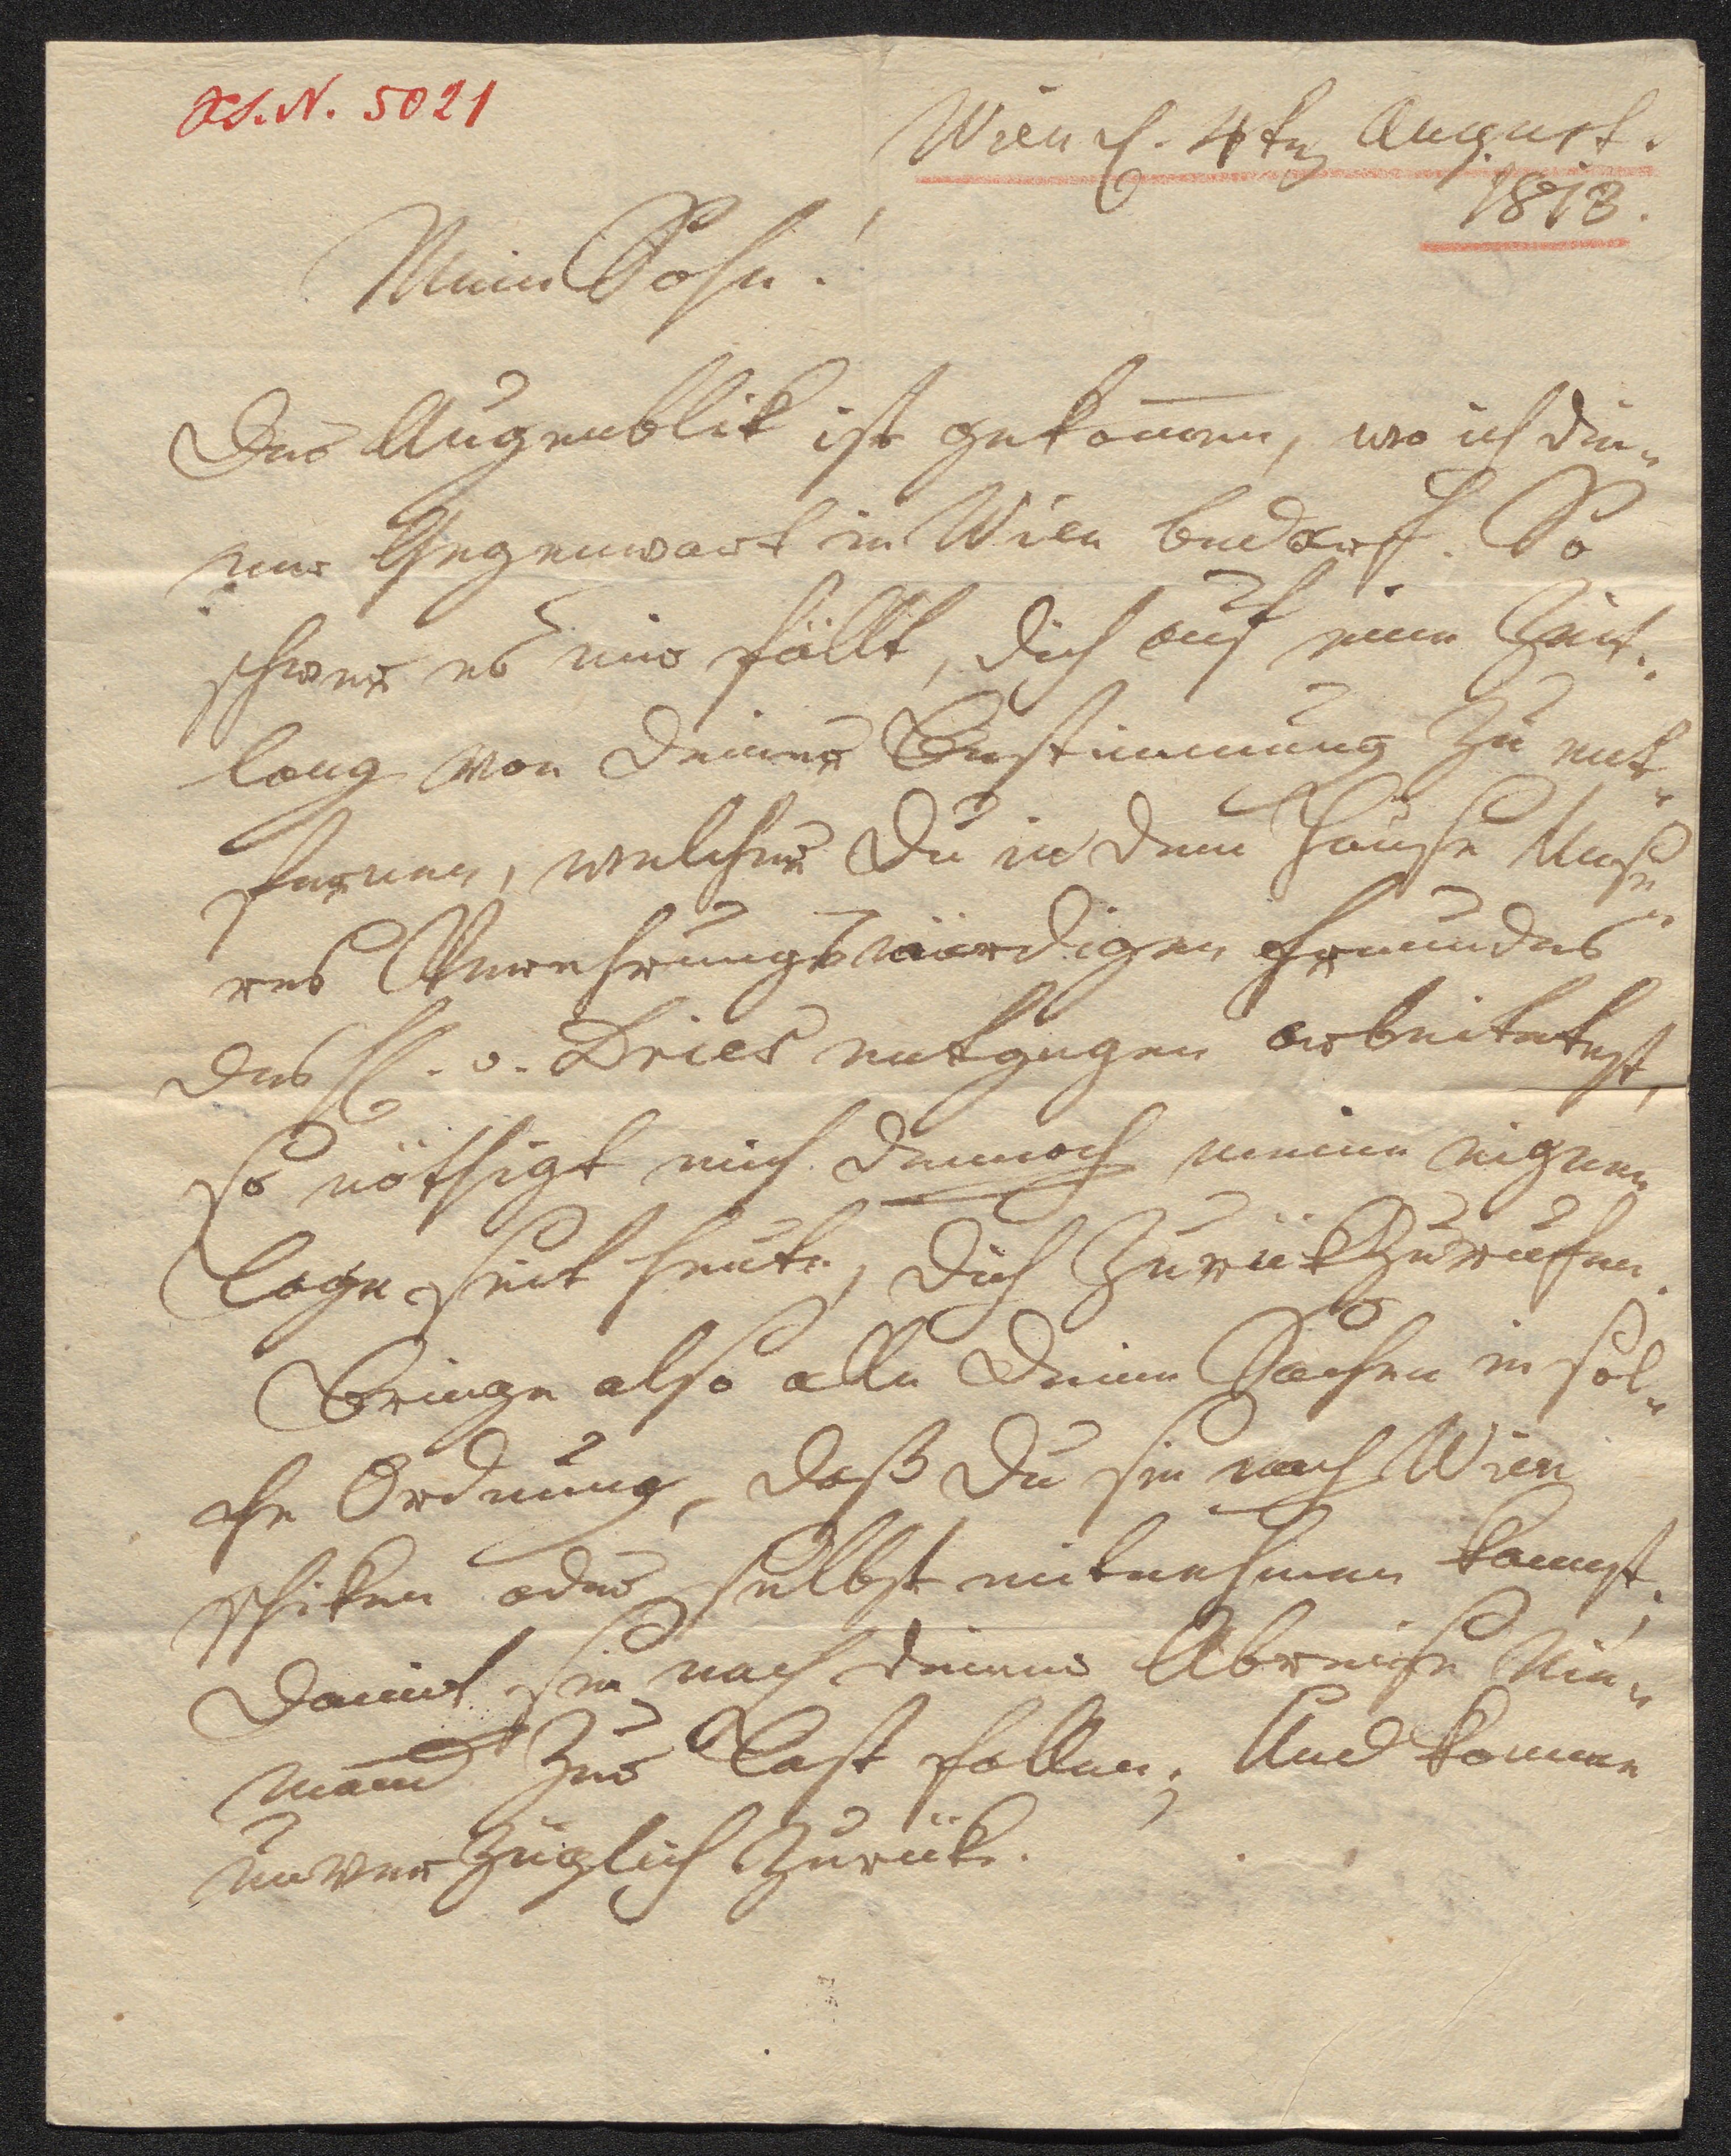 H.I.N. 5021
Wien d. 4ten August.
1813.
Mein Sohn!
Der Augenblik ist gekom̅en, wo ich dei-
ner Gegenwart in Wien bedarf. So
schwer es mir fällt, dich auf eine Zeit-
lang von deiner Bestimmung zu ent-
fernen, welcher Du in dem Hause Unse-
res Verehrungswürdigen Freundes
des H. v. Dries entgegen arbeitetest,
so nöthigt mich dennoch meine eigne
Lage seit heute, dich zurükzurufen.
Bringe also alle deine Sachen in sol-
che Ordnung, daß Du sie nach Wien
schiken oder selbst mitnehmen kannst,
damit sie nach deiner Abreise Nie-
mand zur Last fallen; Und komme
unverzüglich zurük.